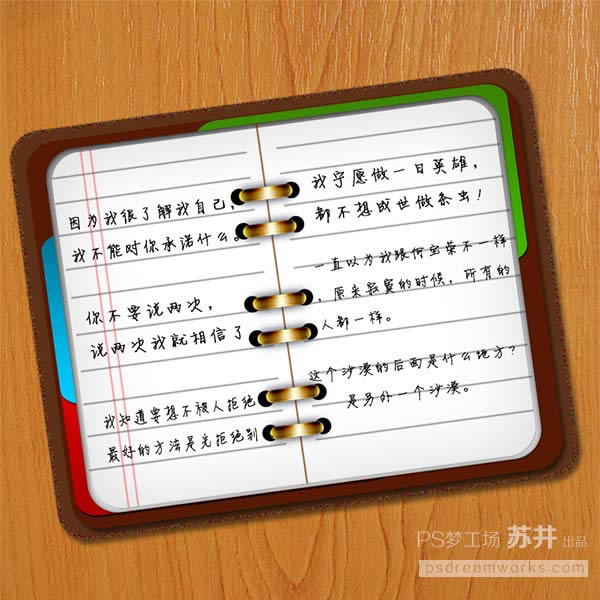 因为我很了解我自己，
我不能对你承诺什么。
你不要说两次，
说两次我就相信了
我知道要想不被人拒绝
最好的方法是先拒绝别
我宁愿做一日英雄，
都不想成世做条虫！
一直以为我跟何宝荣不一样
，原来寂寞的时候，所有的
人都一样。
这个沙漠的后面是什么地方？
是另外一个沙漠。
PS梦工场 苏井 出品
psdreamworks.com